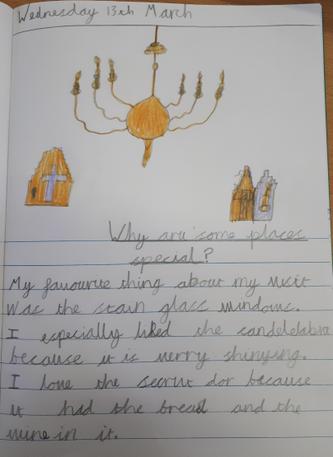 Wednesday 13th March
Why are some places
special?
My favourite thing about my visit
was the stain glass windows.
I especially liked the candelelabra
because it is verry shinying.
I love the secrut dor because
it had the bread and the
wine in it.